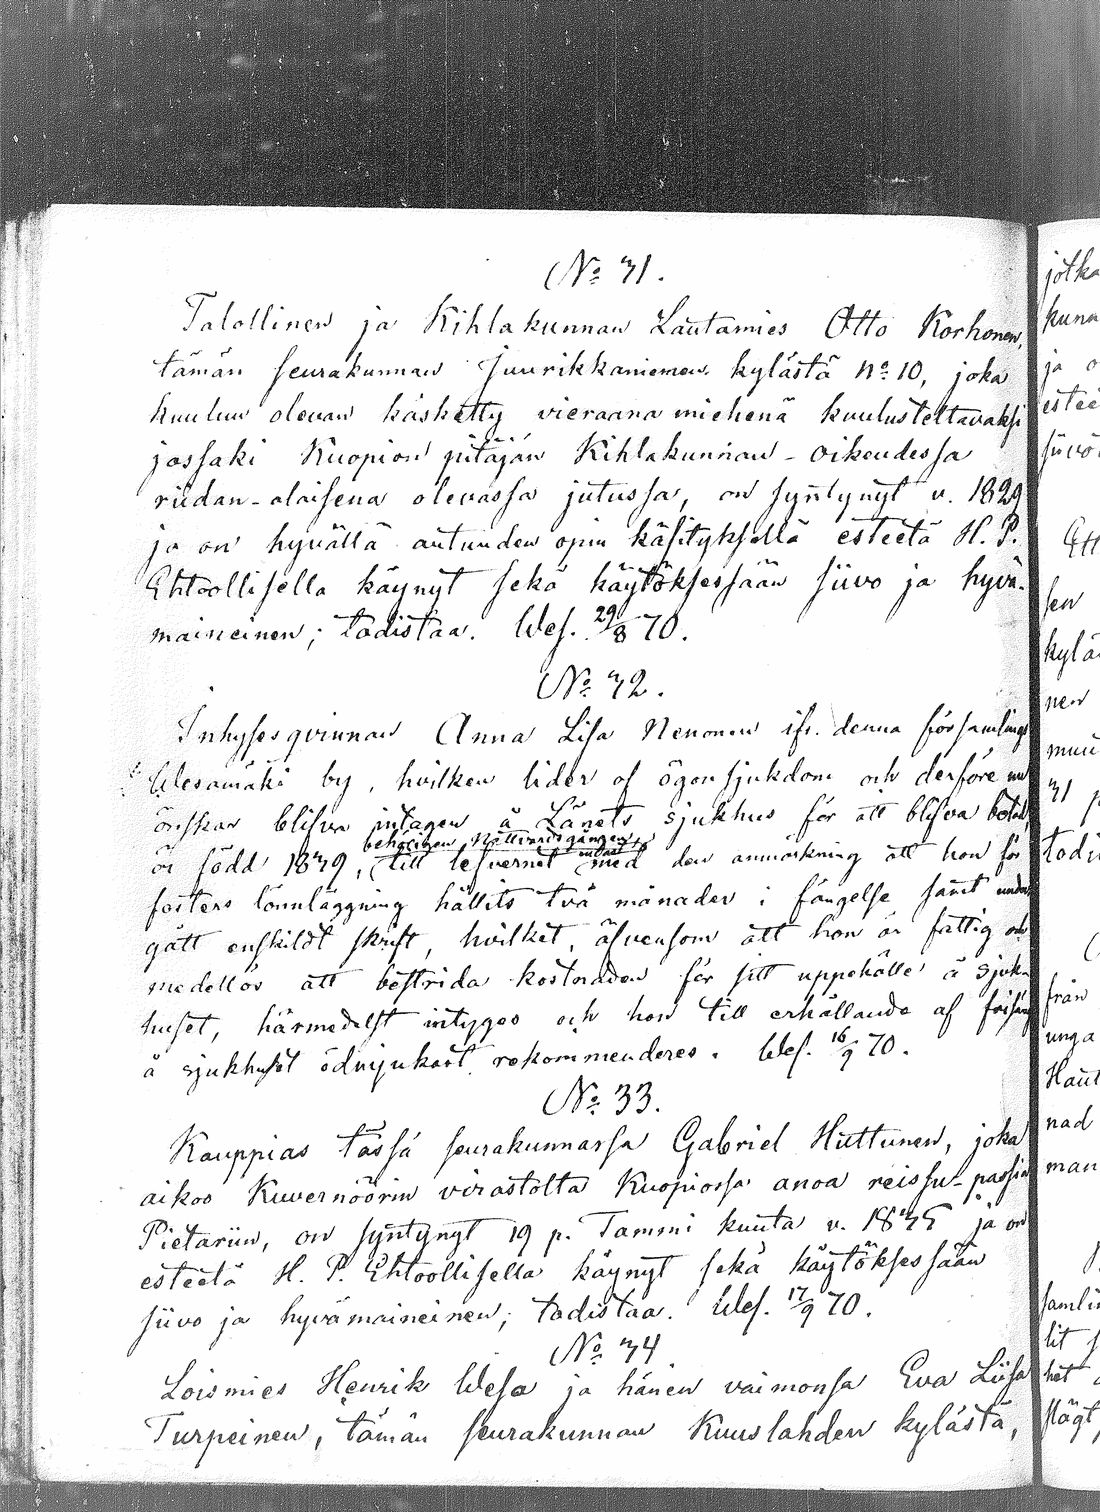 No 31.
Talollinen ja Kihlakunnan Lautamies Otto Korhonen,
tämän seurakunnan Juurikkaniemen kylästä No 10, joka
kuuluu olevan käsketty vieraana miehenä kuulusteltavaksi
jossaki Kuopion pitäjän Kihlakunnan-oikeudessa
riidan-alaisena olevassa jutussa, on syntynyt v. 1829
ja on hyvällä autuuden opin käsityksellä esteetä H. P.
Ehtoollisella käynyt sekä käytöksessään siivo ja hyvä-
maineinen; todistaa. Wes. 29/8 70.
No 32.
Inhysesqvinnan Anna Lisa Nenonen ifr. denna församlings
Wesamäki by, hvilken lider af ögonsjukdom och derföre nu
önskar blifva intagen å Länets sjukhus för att blifva botad,
behörigen Nattvardsgången,
är född 1849, till lefvernet med den anmärkning att hon för
fosters lönnläggning hållits två månader i fängelse samt under-
gått enskildt skrift, hvilket, äfvensom att hon är fattig och
medellös att bestrida kostnaden för sitt uppehälle å sjuk-
huset, härmedelst intygas och hon till erhållande af frisäng
å sjukhuset ödmjukast rekommenderes. Wes. 16/9 70.
No 33.
Kauppias tässä seurakunnassa Gabriel Huttunen, joka
aikoo Kuvernöörin virastolta Kuopiossa anoa reissu-passia
Pietariin, on syntynyt 19 p. Tammi kuuta v. 1845 ja on
esteetä H. P. Ehtoollisella käynyt sekä käytöksessään
siivo ja hyvämaineinen; todistaa. Wes. 17/9 70.
No 34
Loismies Henrik Wesa ja hänen vaimonsa Eva Liisa
Turpeinen, tämän seurakunnan Kuuslahden kylästä,